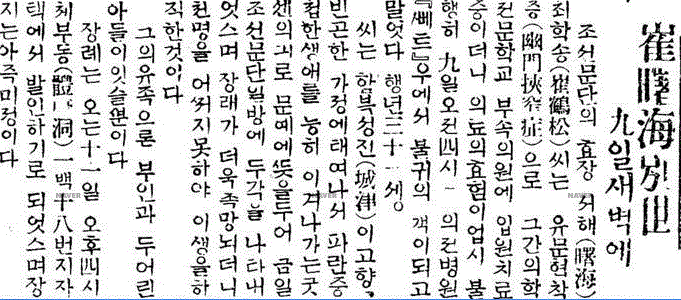 崔曙海別世
九일새벽에
조선문단의 효장 서해(曙海)
최학송(崔鶴松)씨는 유문협착
증(幽門挾窄症)으로 그간의학
전문학교 부속의원에 입원치료
중이더니 의료의효험이업시 불
행히 九일오전四시 의전병원
『뻬트』우에서 불귀의 객이되고
말엇다 행년三十 세
씨는 함북성진(城津)이고향,
빈곤한 가정에태여나서 파란중
첩한생애를 능히 이겨나가는굿
센의지로 문예에뜻을두어 금일
조선문단일방에 두각을 나타내
엇스며 장래가 더욱촉망되더니
천명을 어찌지못하야 이생을하
직한것이다
그의유족으론 부인과 두어린
아들이잇슬뿐이다
장례는 오는十一일 오후四시
체부동(體 洞) 一百十八번지자
택에서 발인하기로 되엇스며장
지는아즉미정이다